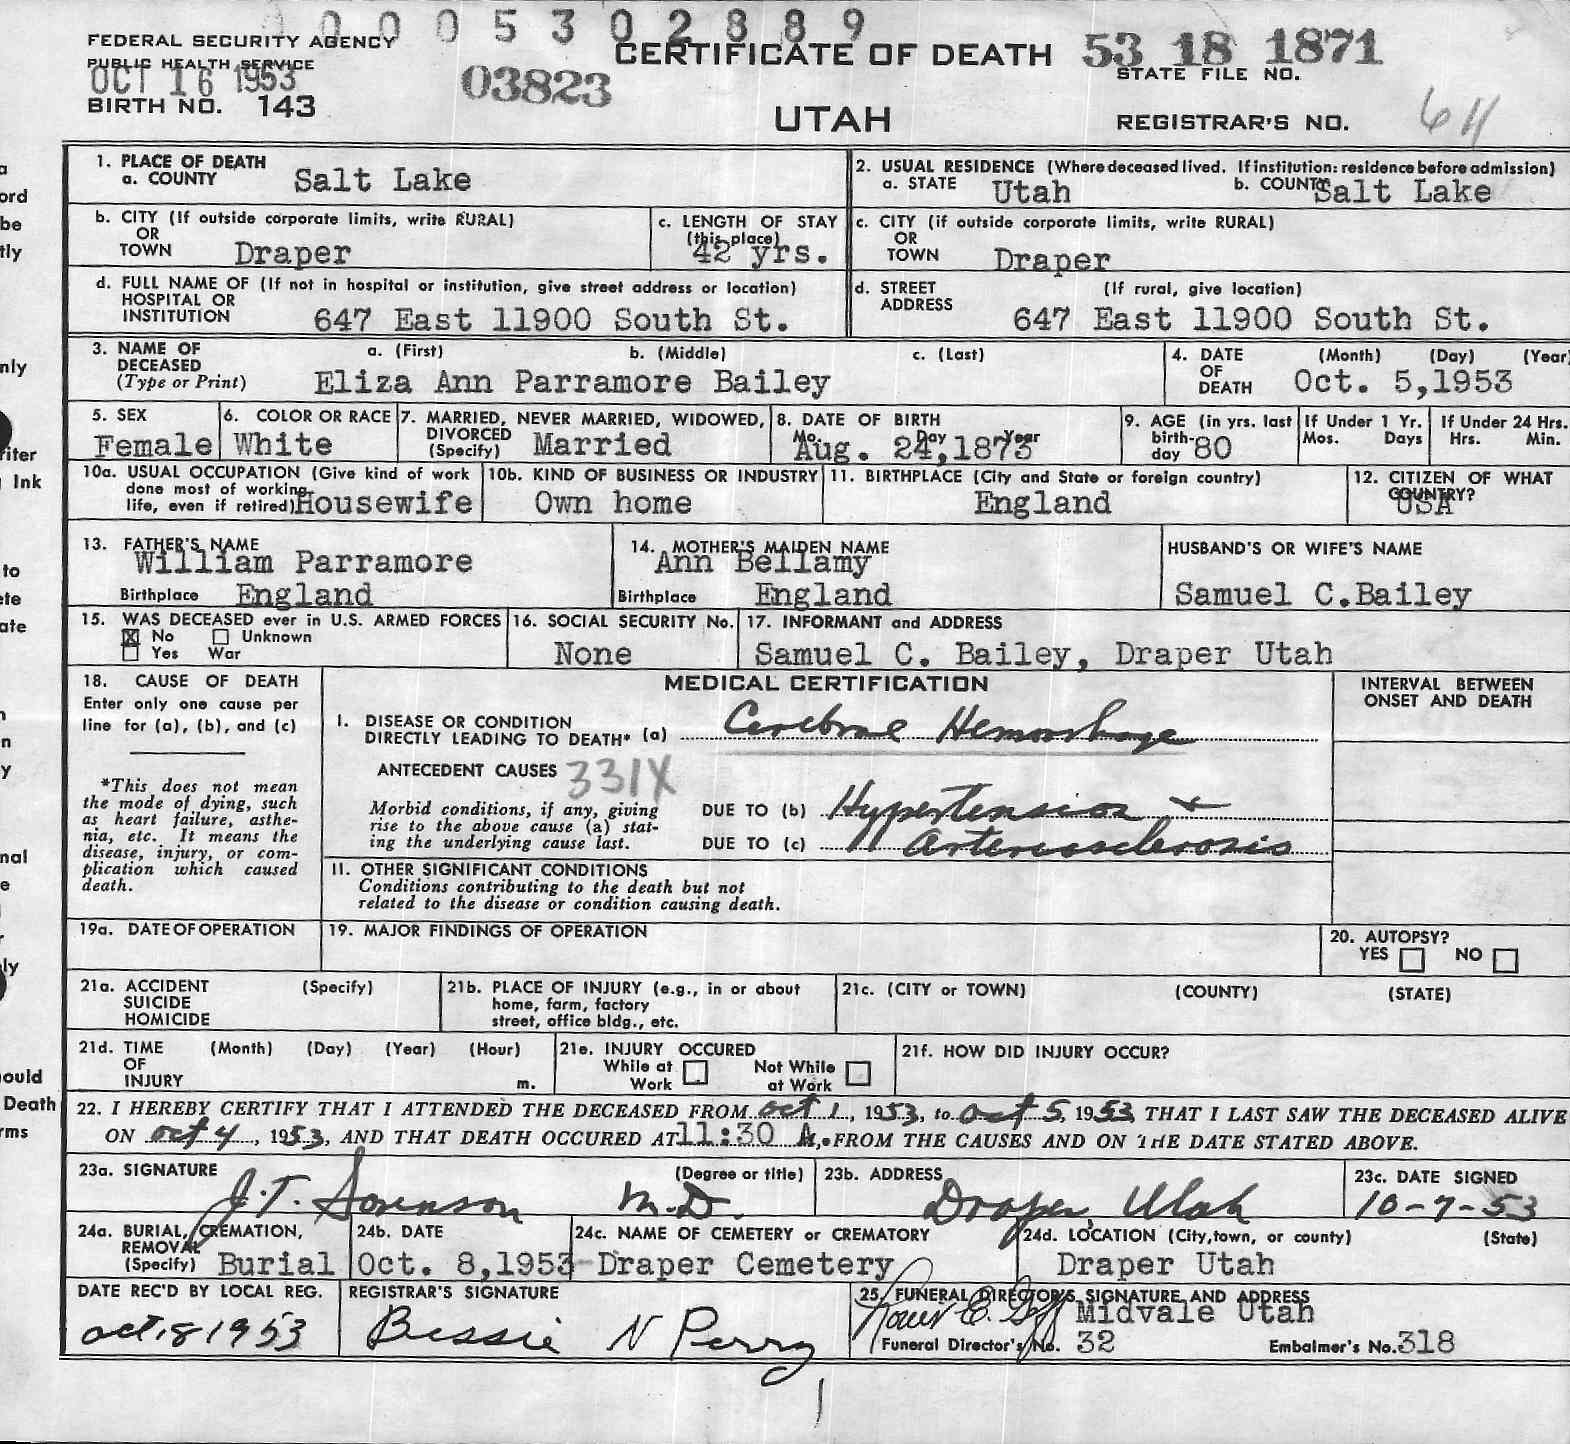 0005302889
FEDERAL SECURITY AGENCY
PUBLIC HEALTH SERVICE
OCT 16 1953
BIRTH NO. 143
03823
CERTIFICATE OF DEATH
UTAH
53 18 1871
STATE FILE NO.
REGISTRAR'S NO. 611
1. PLACE OF DEATH
a. COUNTY Salt Lake
2. USUAL RESIDENCE (Where deceased lived. If institution: residence before admission)
a. STATE Utah b. COUNTY Salt Lake
b. CITY (If outside corporate limits, write RURAL)
OR
TOWN Draper
c. LENGTH OF STAY
(this place)
42 yrs.
c. CITY (if outside corporate limits, write RURAL)
OR
TOWN Draper
d. FULL NAME OF (If not in hospital or institution, give street address or location)
HOSPITAL OR
INSTITUTION 647 East 11900 South St.
d. STREET (If rural, give location)
ADDRESS
647 East 11900 South St.
3. NAME OF a. (First) b. (Middle) c. (Last)
DECEASED
(Type or Print) Eliza Ann Parramore Bailey
4. DATE (Month) (Day) (Year)
OF
DEATH Oct. 5,1953
5. SEX
Female
6. COLOR OR RACE
White
7. MARRIED, NEVER MARRIED, WIDOWED,
DIVORCED
(Specify) Married
8. DATE OF BIRTH
Mo. Day Year
Aug. 24,1873
9. AGE (in yrs. last
birth-
day 80
If Under 1 Yr.
Mos. Days
If Under 24 Hrs.
Hrs. Min.
10a. USUAL OCCUPATION (Give kind of work
done most of working
life, even if retired) Housewife
10b. KIND OF BUSINESS OR INDUSTRY
Own home
11. BIRTHPLACE (City and State or foreign country)
England
12. CITIZEN OF WHAT
COUNTRY?
USA
13. FATHER'S NAME
William Parramore
Birthplace England
14. MOTHER'S MAIDEN NAME
Ann Bellamy
Birthplace England
HUSBAND'S OR WIFE'S NAME
Samuel C.Bailey
15. WAS DECEASED ever in U.S. ARMED FORCES
No Unknown
Yes War
16. SOCIAL SECURITY No.
None
17. INFORMANT and ADDRESS
Samuel C. Bailey, Draper Utah
18. CAUSE OF DEATH
Enter only one cause per
line for (a), (b), and (c)
*This does not mean
the mode of dying, such
as heart failure, asthe-
nia, etc. It means the
disease, injury, or com-
plication which caused
death.
MEDICAL CERTIFICATION
INTERVAL BETWEEN
ONSET AND DEATH
I. DISEASE OR CONDITION
DIRECTLY LEADING TO DEATH* (a) Cerebral Hemorrhage
ANTECEDENT CAUSES 331X
Morbid conditions, if any, giving
rise to the above cause (a) stat-
ing the underlying cause last.
DUE TO (b) Hypertension +
DUE TO (c) arteriosclerosis
II. OTHER SIGNIFICANT CONDITIONS
Conditions contributing to the death but not
related to the disease or condition causing death.
19a. DATE OF OPERATION
19. MAJOR FINDINGS OF OPERATION
20. AUTOPSY?
YES NO
21a. ACCIDENT (Specify)
SUICIDE
HOMICIDE
21b. PLACE OF INJURY (e.g., in or about
home, farm, factory
street, office bldg., etc.
21c. (CITY or TOWN) (COUNTY) (STATE)
21d. TIME (Month) (Day) (Year) (Hour)
OF
INJURY m.
21e. INJURY OCCURED
While at Not While
Work at Work
21f. HOW DID INJURY OCCUR?
22. I HEREBY CERTIFY THAT I ATTENDED THE DECEASED FROM oct 1, 1953, to oct 5, 1953 THAT I LAST SAW THE DECEASED ALIVE
ON oct 4, 1953, AND THAT DEATH OCCURED AT 11:30 A,. FROM THE CAUSES AND ON THE DATE STATED ABOVE.
23a. SIGNATURE (Degree or title)
J.T. Sorenson M.D.
23b. ADDRESS
Draper, Utah
23c. DATE SIGNED
10-7-53
24a. BURIAL, CREMATION,
REMOVAL
(Specify) Burial
24b. DATE
Oct. 8,1953
24c. NAME OF CEMETERY or CREMATORY
Draper Cemetery
24d. LOCATION (City, town, or county) (State)
Draper Utah
DATE REC'D BY LOCAL REG.
oct. 8 1953
REGISTRAR'S SIGNATURE
Bessie N Perry
25. FUNERAL DIRECTOR'S SIGNATURE AND ADDRESS
Midvale Utah
Funeral Director's No. 32 Embalmer's No. 318